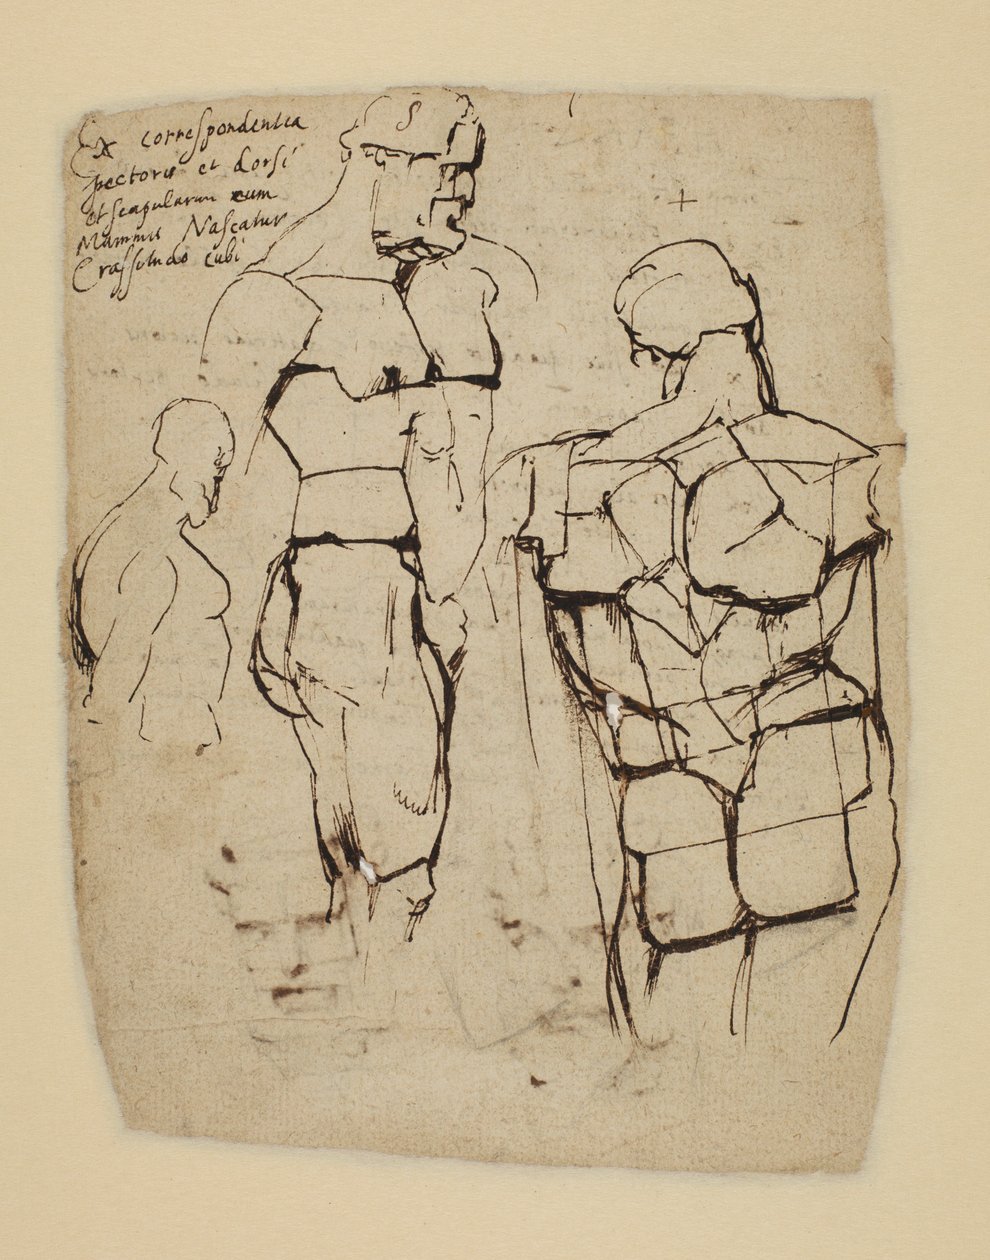 Ex correspondentia
pectoris et dorsi
et scapularum cum
Mammis Nascatur
Crassitudo cubi
S